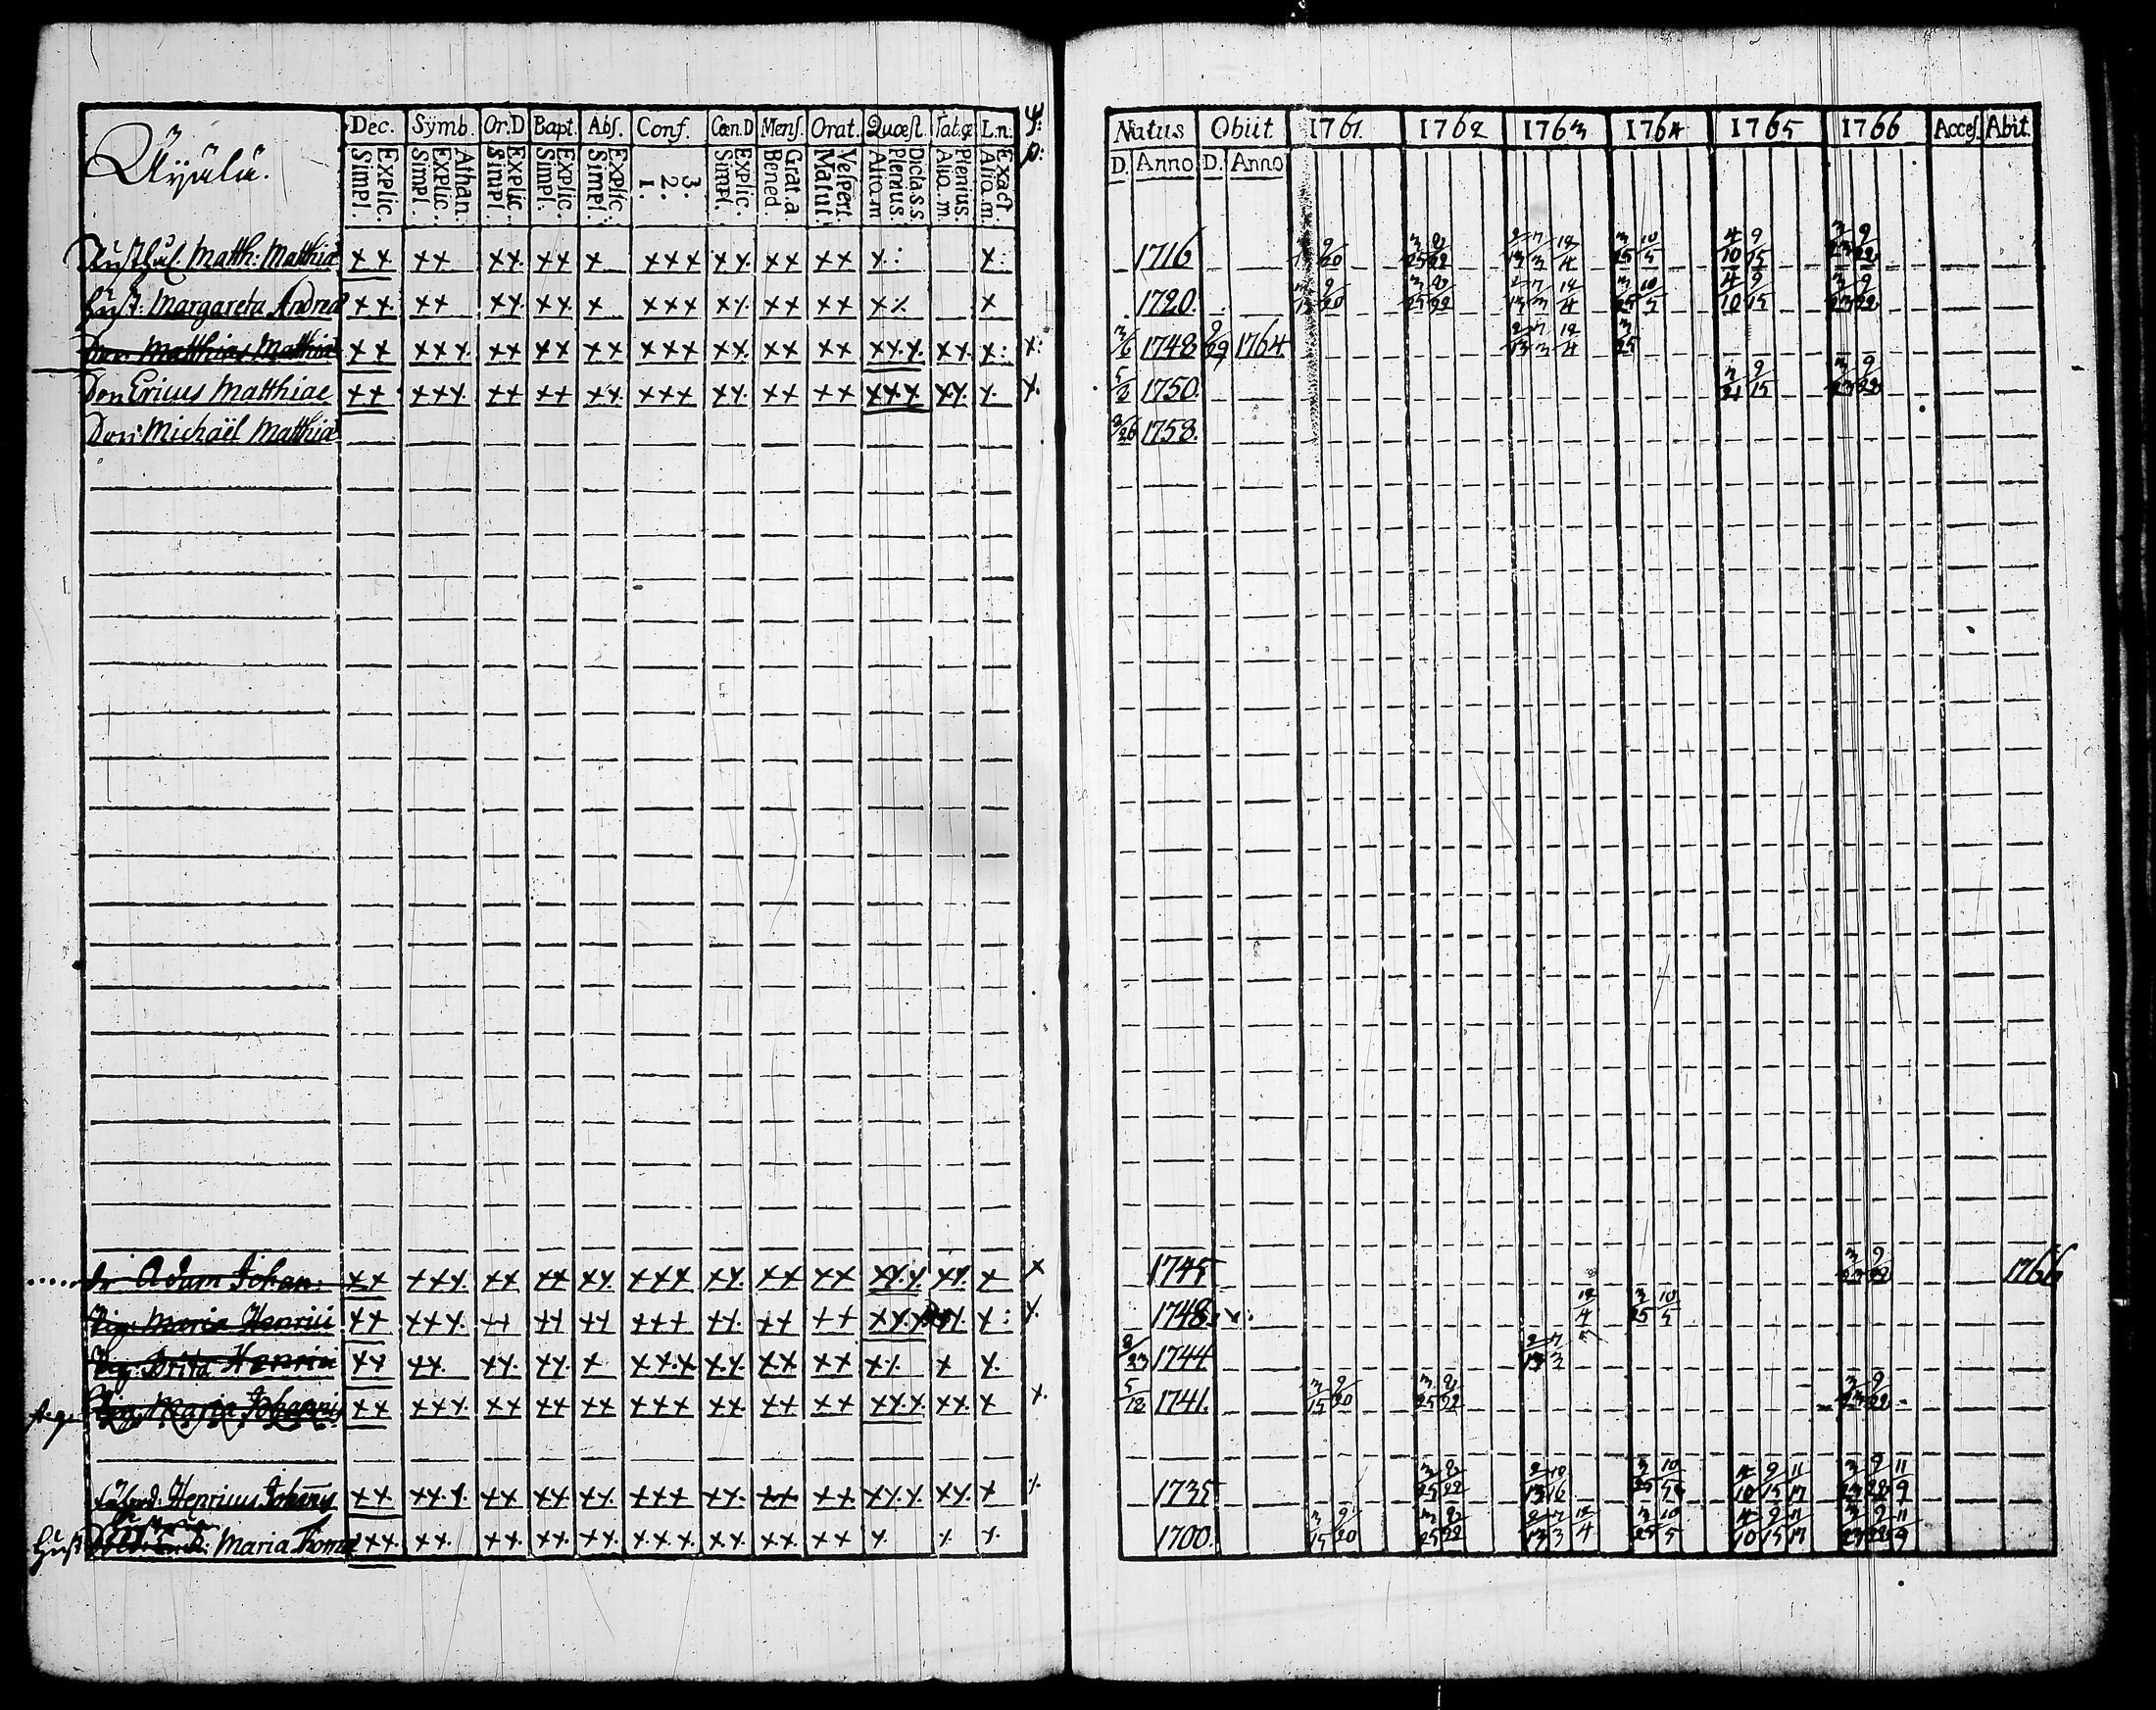 Dec. Symb. Or.D Bapt. Abſ. Conf. Cœn.D Menſ. Orat. Quœſt. Tab.œ L.n.
Simpl. Explic. Simpl. Explic. Athan. Simpl. Explic. Simpl. Explic. Simpl. Explic. 1. 2. 3. Simpl. Explic. Bened. Grat.a Matut. Veſpert. Alia.m Plenius Dicla.s.s Alia.m Plenius Alia.m. Exact.
Natus Obiit 1761. 1762 1763 1764 1765 1766 Acceſ. Abit.
D. Anno D. Anno
Matth: Matthiæ xx xx xx xx x xxx xx xx xx x: x: 1716 9/20 3/25 8/22 2/13 7/3 12/4 3/25 10/5 4/10 9/15 3/23 9/22
Huſt: Margareta Andreæ xx xx xx xx x xxx xx xx xx xx x 1720. 9/20 3/25 8/22 2/13 7/3 12/4 3/25 10/5 4/10 9/15 3/23 9/22
Don Matthias Matthiæ xx xxx xx xx xx xxx xx xx xx xxx xx x: x: 3/6 1748 9/29 1764 2/13 7/3 12/4 3/25
Don Ericus Matthiae xx xxx xx xx xx xxx xx xx xx xxx xx x. x. 5/2 1750. 3/21 9/15 3/23 9/22
Don: Michaël Matthiæ 1758.
dr Adam Johan: xx xxx xx xx xx xxx xx xx xx xxx xx x x 1745 3/23 9/22 1766
Pig. Maria Henrici xx xxx xx xx xx xxx xx xx xx xxx x: x. 1748 12/4 3/25 10/5
Pig. Brita Henrici xx xx. xx. xx. x xxx xx xx xx xx x x. 8/23 1744 2/13 7/3
Maria Johannis xx xxx xx xx xx xxx xx xx xx xxx xx. x x. 5/12 1741. 3/15 9/20 3/25 8/22 3/23 9/22
Henricus Johans xx xxx xx xx xx xxx xx xx xx xxx xx x x 1735 3/25 8/22 2/13 10/16 3/25 10/5 4/10 9/15 11/17 3/23 9/22 11/9
Huſt: Maria Thomæ xxx. xx. xx xx. xx. xxx. xx xx xx x. x x. 1700. 3/15 9/20 3/25 8/22 2/13 7/3 12/4 3/25 10/5 4/10 9/15 11/17 3/23 9/22 11/9